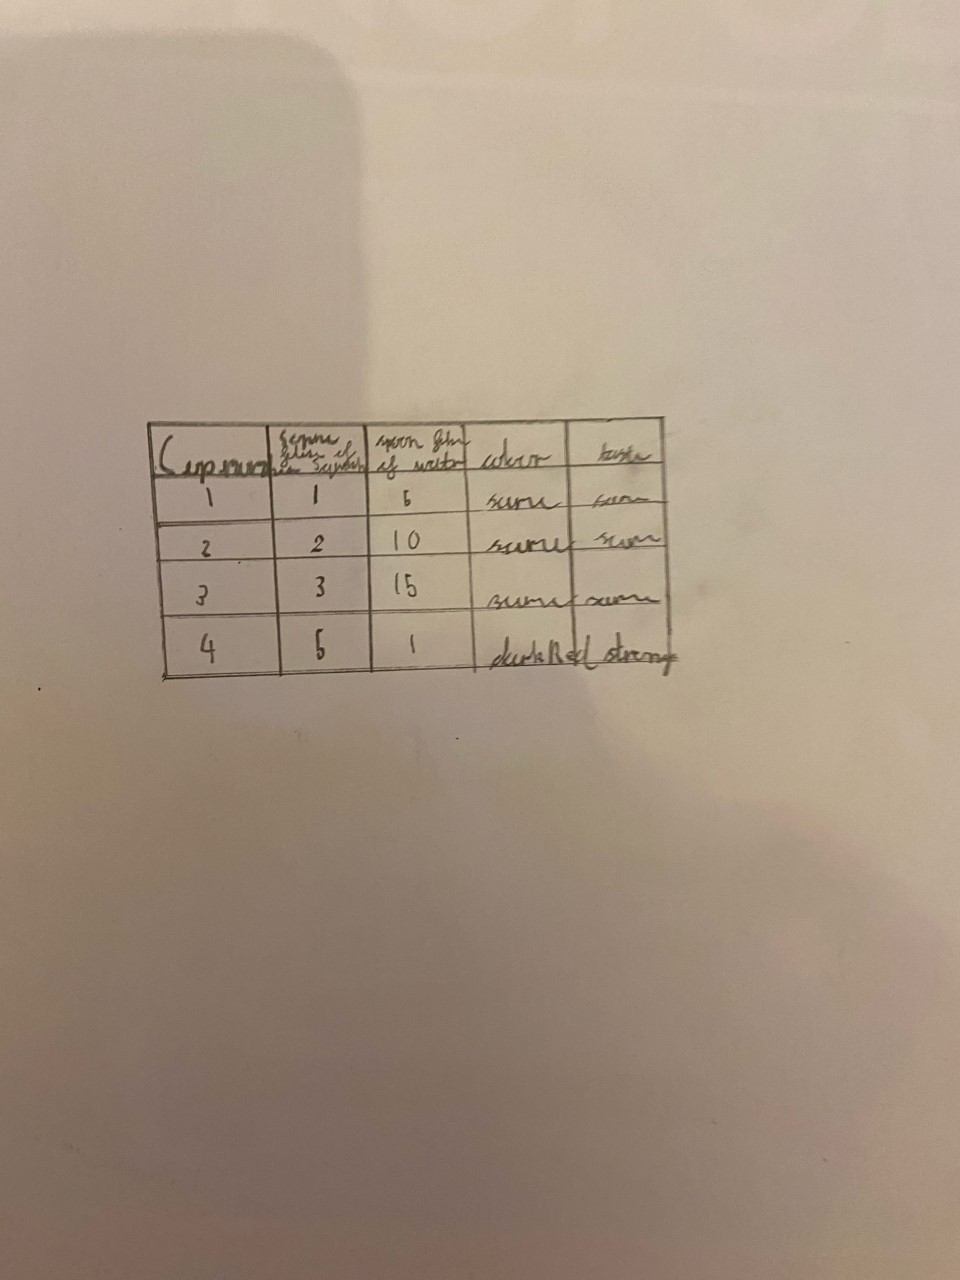 Cup num spoon full of water colour taste
1 1 5 same same
2 2 10 same same
3 3 15 same same
4 5 1 dark Red strong